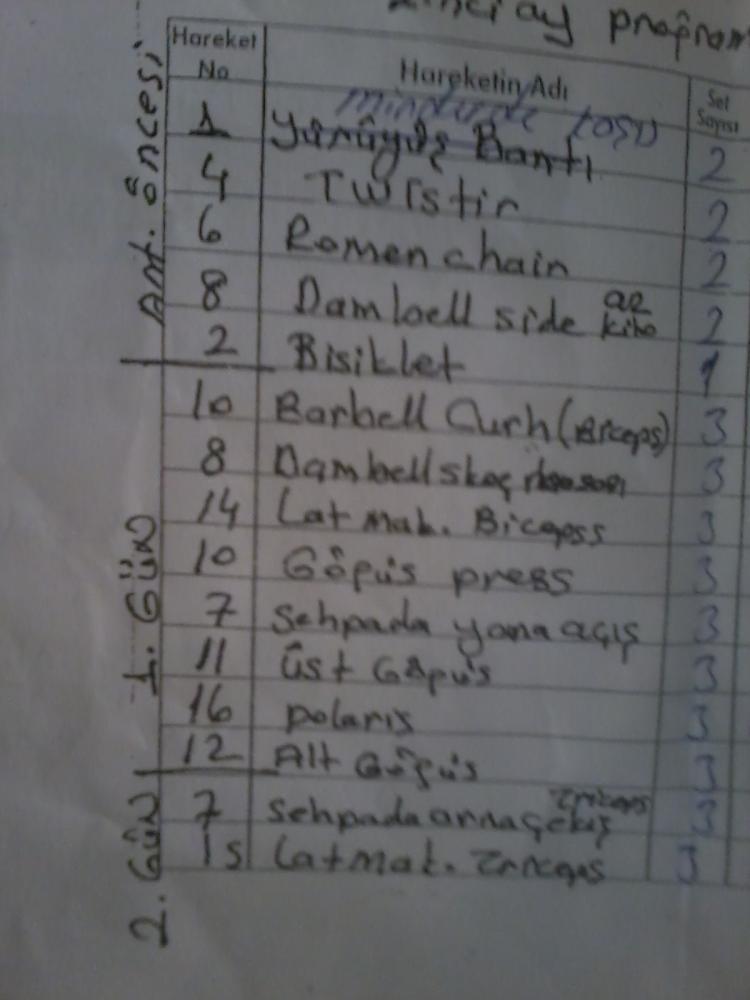 ay program
Hareket No Hareketin Adı Set Sayısı
minderde
1 Yürüyüş Bantı 2
4 Twistir 2
6 Romen chain 2
8 Dambell side az kilo 2
2 Bisiklet 1
10 Barbell Curh (Biceps) 3
8 Dambell skoç 3
14 Lat mak. Bicepss 3
10 Göğüs press 3
7 Sehpada yana açış 3
11 Üst Göğüs 3
16 polaris 3
12 Alt Göğüs 3
7 Sehpada arnaçekiş 3
15 Latmak. Triceps 3
Ant. öncesi
1. Gün
2. Gün